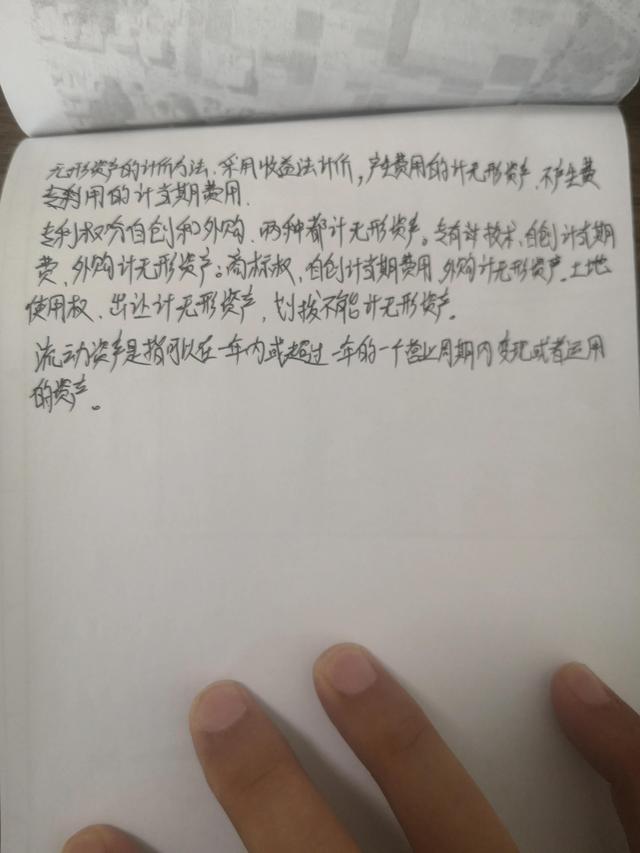 无形资产的计价方法.采用收益法计价,产生费用的计无形资产.不产生费
用的计当期费用.
专利权含自创和外购.两种都计无形资产。专有计技术.自创计当期
费,外购计无形资产。商标权,自创计当期费用.外购计无形资产.土地
使用权.出让计无形资产,划拨不能计无形资产。
流动资产是指可以在一年内或超过一年的一个营业周期内变现或者运用
的资产。